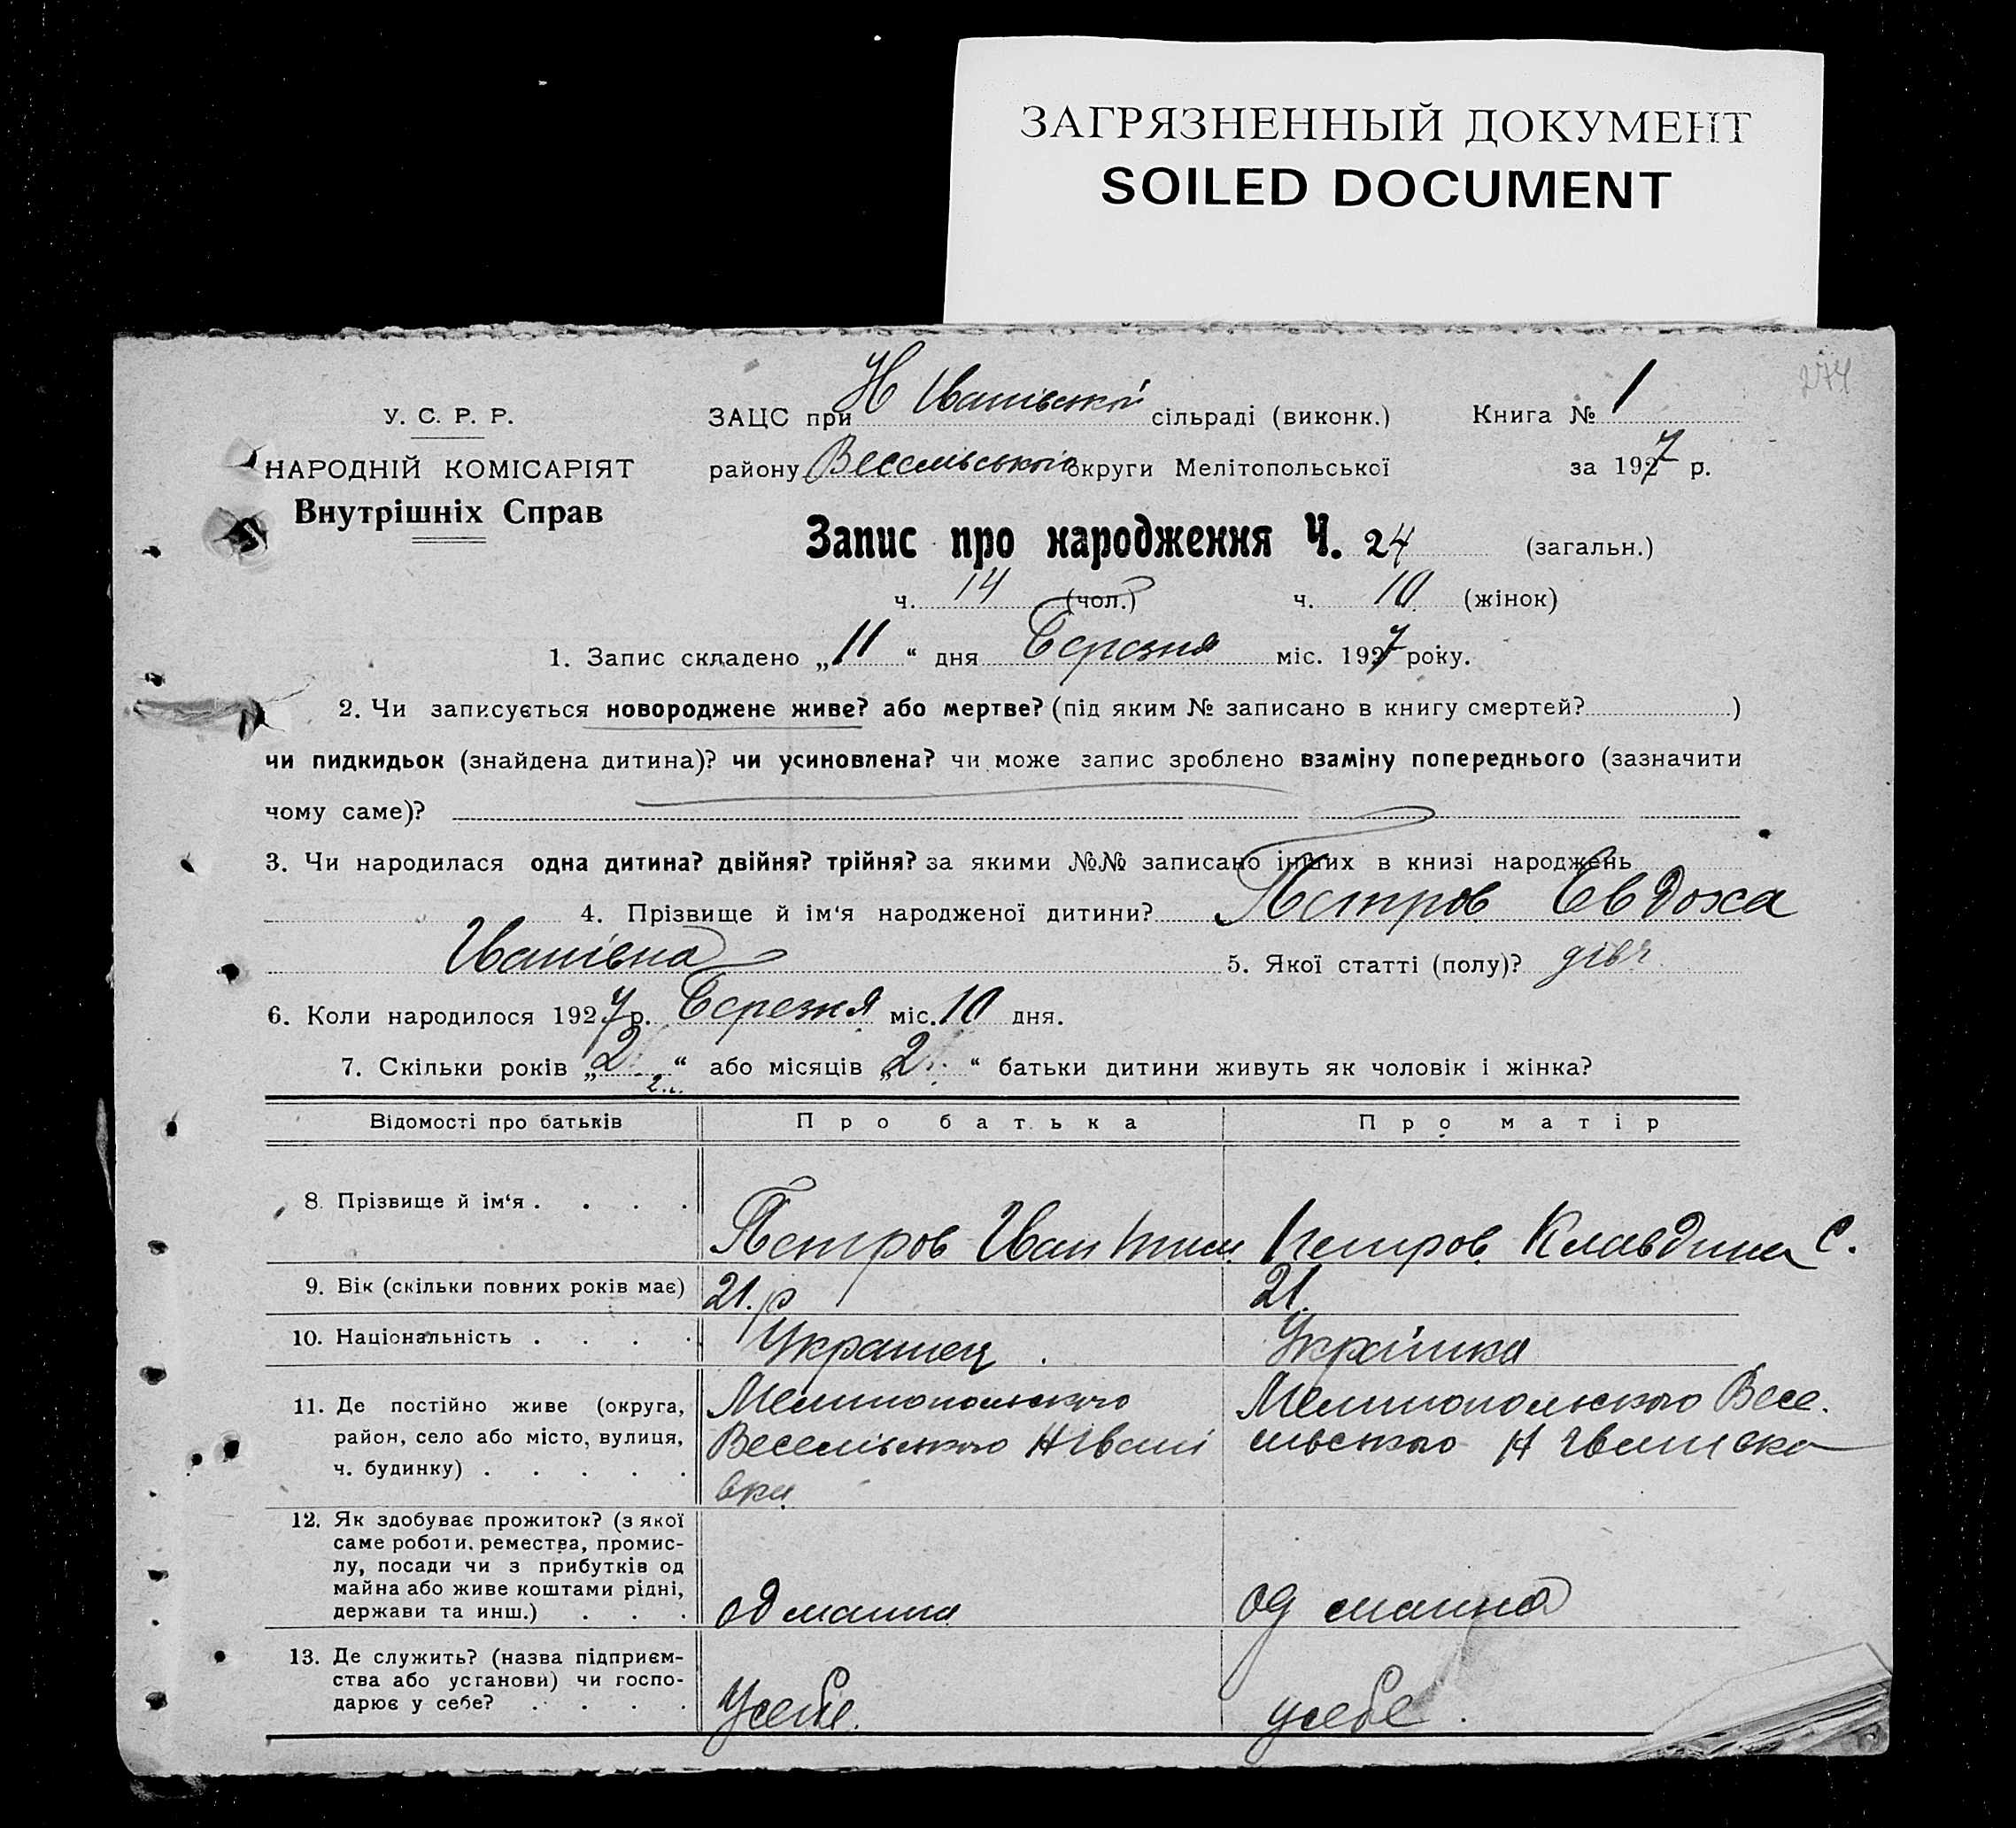 ЗАГРЯЗНЕННЫЙ ДОКУМЕНТ
SOILED DOCUMENT
274
У. С. Р. Р.
НАРОДНІЙ КОМІСАРІЯТ
Внутрішніх Справ
ЗАЦС при Н Іванівській сільраді (виконк.) Книга № 1
району Веселівського округи Мелітопольської за 1927 р.
Запис про народження Ч. 24 (загальн.)
ч. 14 (чол.) ч. 10 (жінок)
1. Запис складено „11“ дня Березня міс. 1927 року.
2. Чи записується новороджене живе? або мертве? (під яким № записано в книгу смертей? )
чи пидкидьок (знайдена дитина)? чи усиновлена? чи може запис зроблено взаміну попереднього (зазначити
чому саме)?
3. Чи народилася одна дитина? двійня? трійня? за якими №№ записано інших в книзі народжень
4. Прізвище й ім‘я народженої дитини? Петров Евдоха
Іванівна 5. Якої статті (полу)? дівч
6. Коли народилося 1927 р. Березня міс. 10 дня.
7. Скільки років „2“ або місяців „2“ батьки дитини живуть як чоловік і жінка?
Відомості про батьків Про батька Про матір
8. Прізвище й ім‘я . . . . Петров Іван Петров Клавдина С.
9. Вік (скільки повних років має) 21. р 21.
10. Національність . . . . Украинец . Українка
11. Де постійно живе (округа, Мелитопольского Мелитопольского Весе.
район, село або місто, вулиця, Веселівського Н Івані
ч. будинку) . . . . . вки
льского Н Іванивка
12. Як здобуває прожиток? (з якої
саме роботи, ремества, промис-
лу, посади чи з прибутків од
майна або живе коштами рідні,
держави та инш.) . . . од маина од маина
13. Де служить? (назва підприєм-
ства або установи) чи госпо-
дарює у себе? . . . . Усебе. усебе.